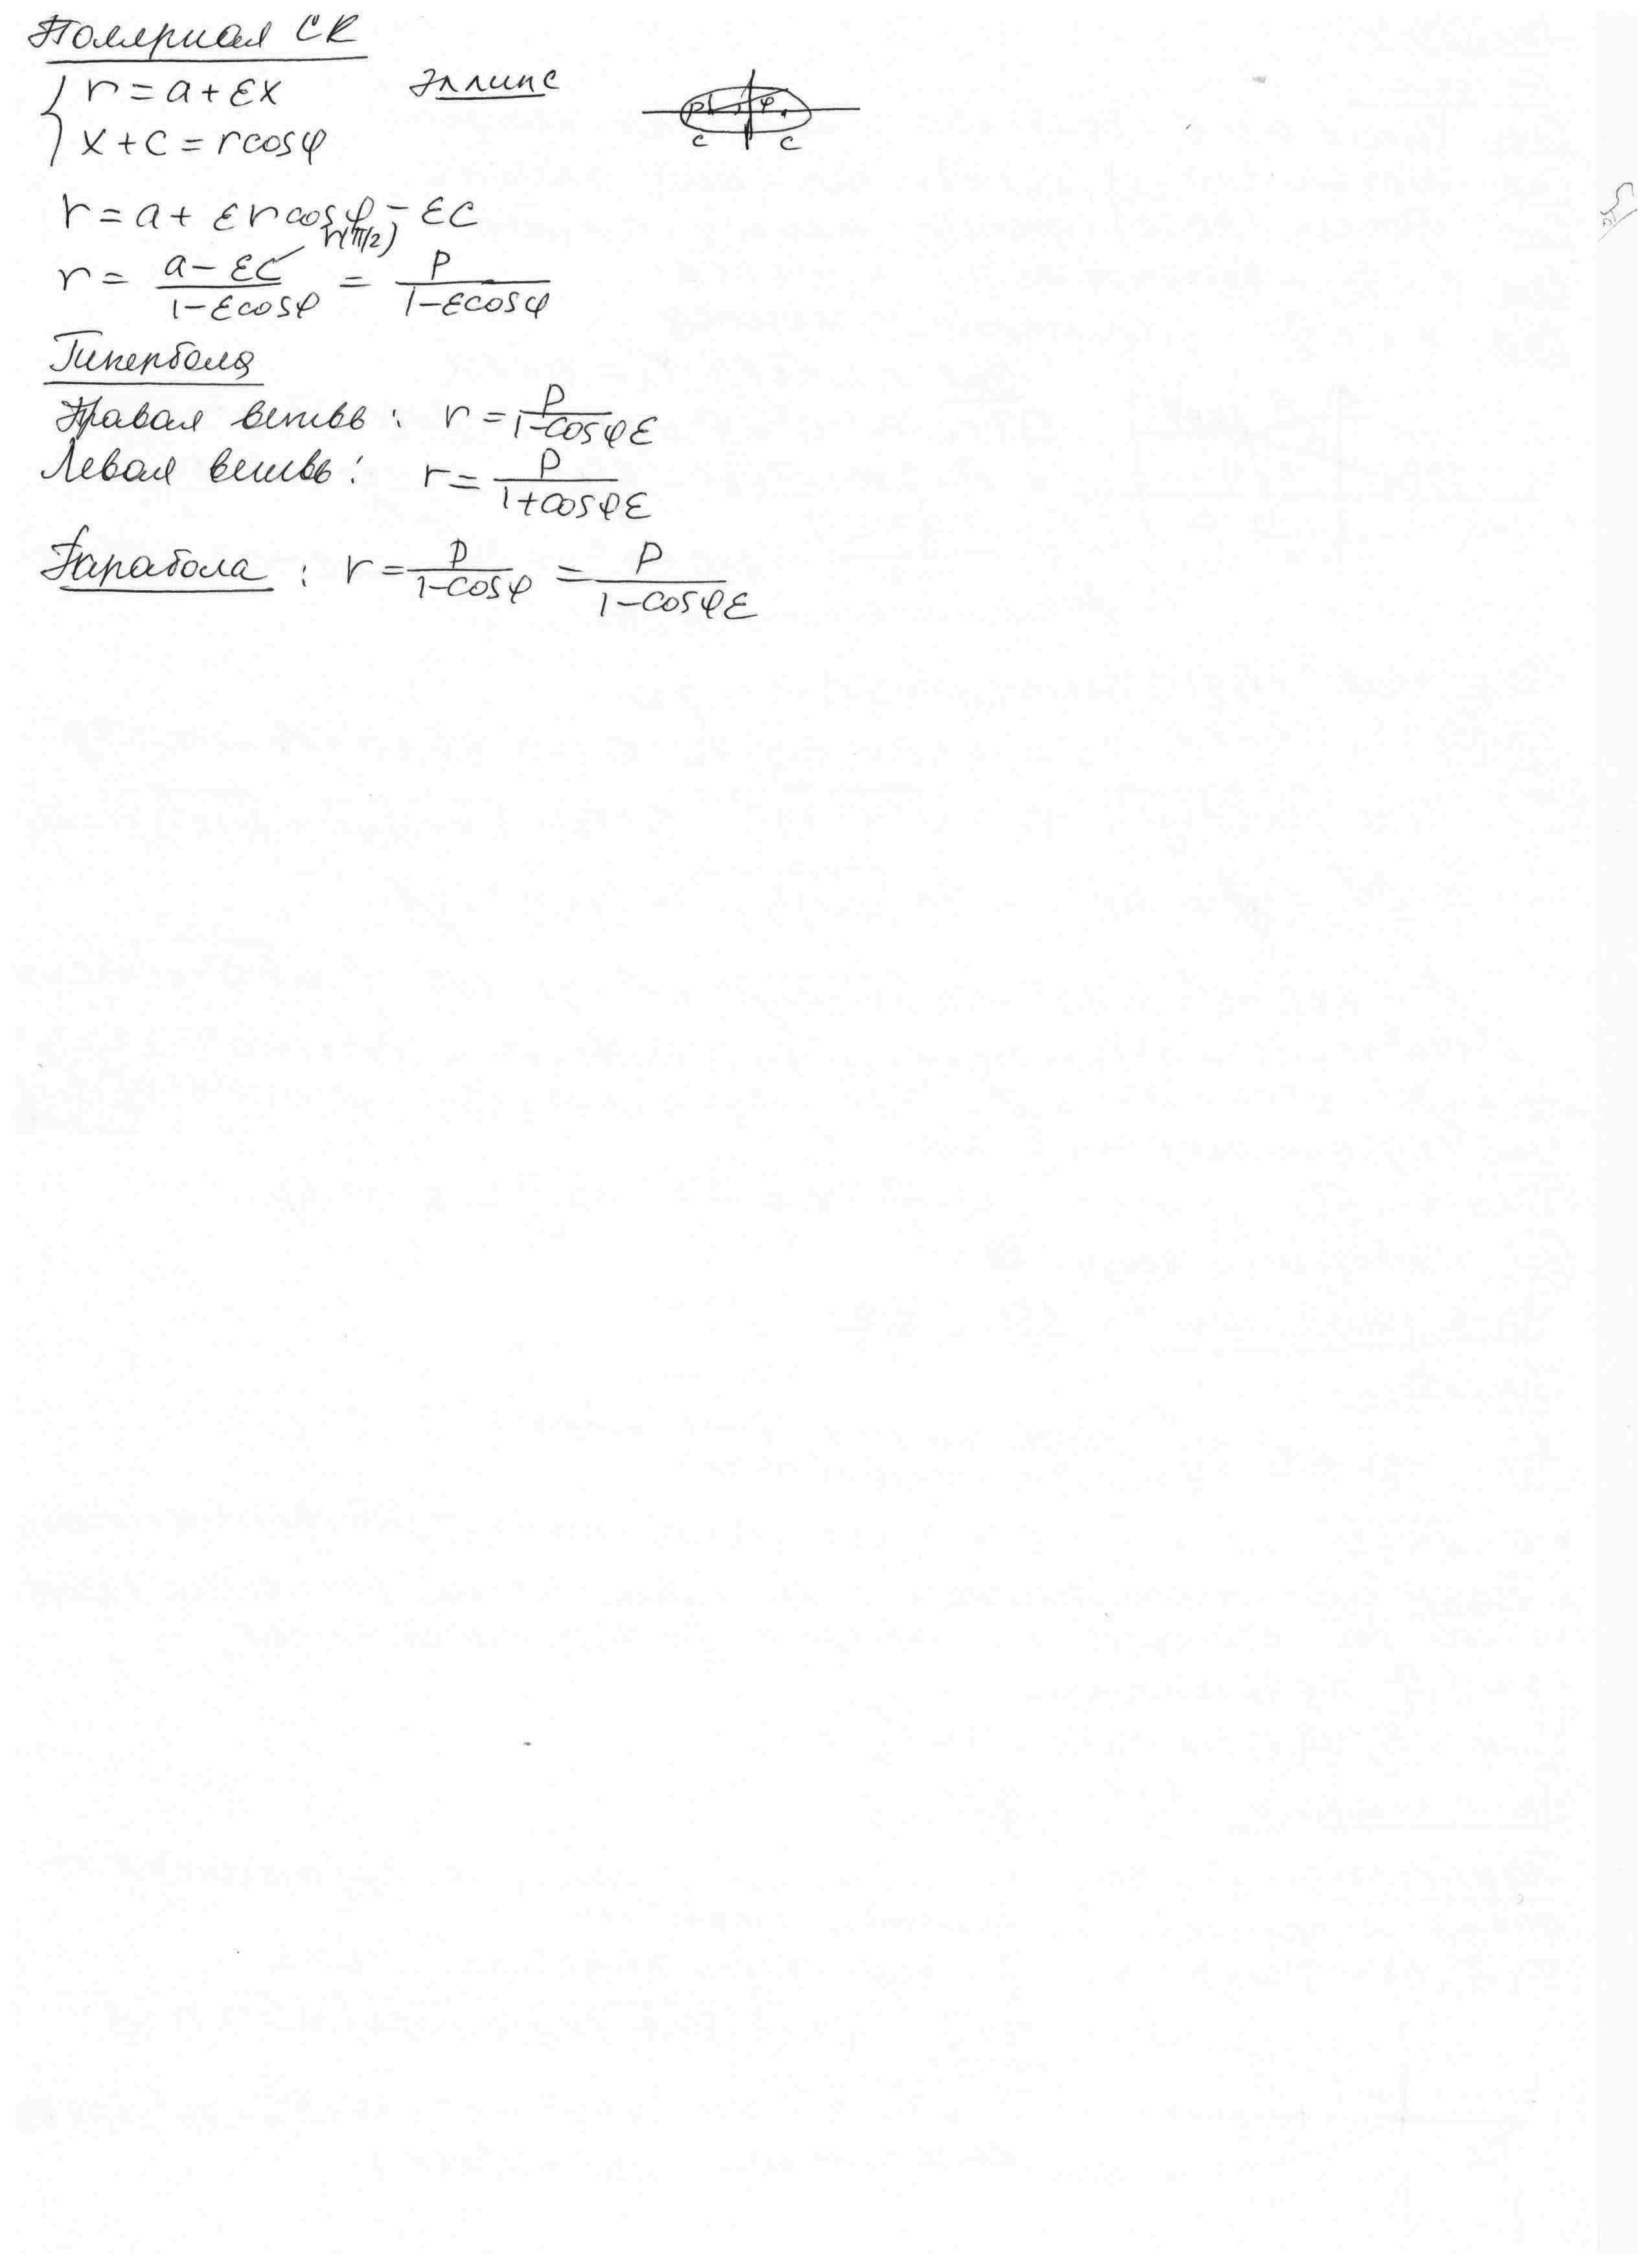 Полярная СК
{ r = a + εx
x + c = r cosφ
Эллипс
p φ
c c
r = a + εr cosφ - εc
r(π/2)
r = (a - εc)/(1 - εcosφ) = p/(1 - εcosφ)
Гипербола
Правая ветвь: r = p/(1 - cosφε)
Левая ветвь: r = p/(1 + cosφε)
Парабола: r = p/(1 - cosφ) = p/(1 - cosφε)